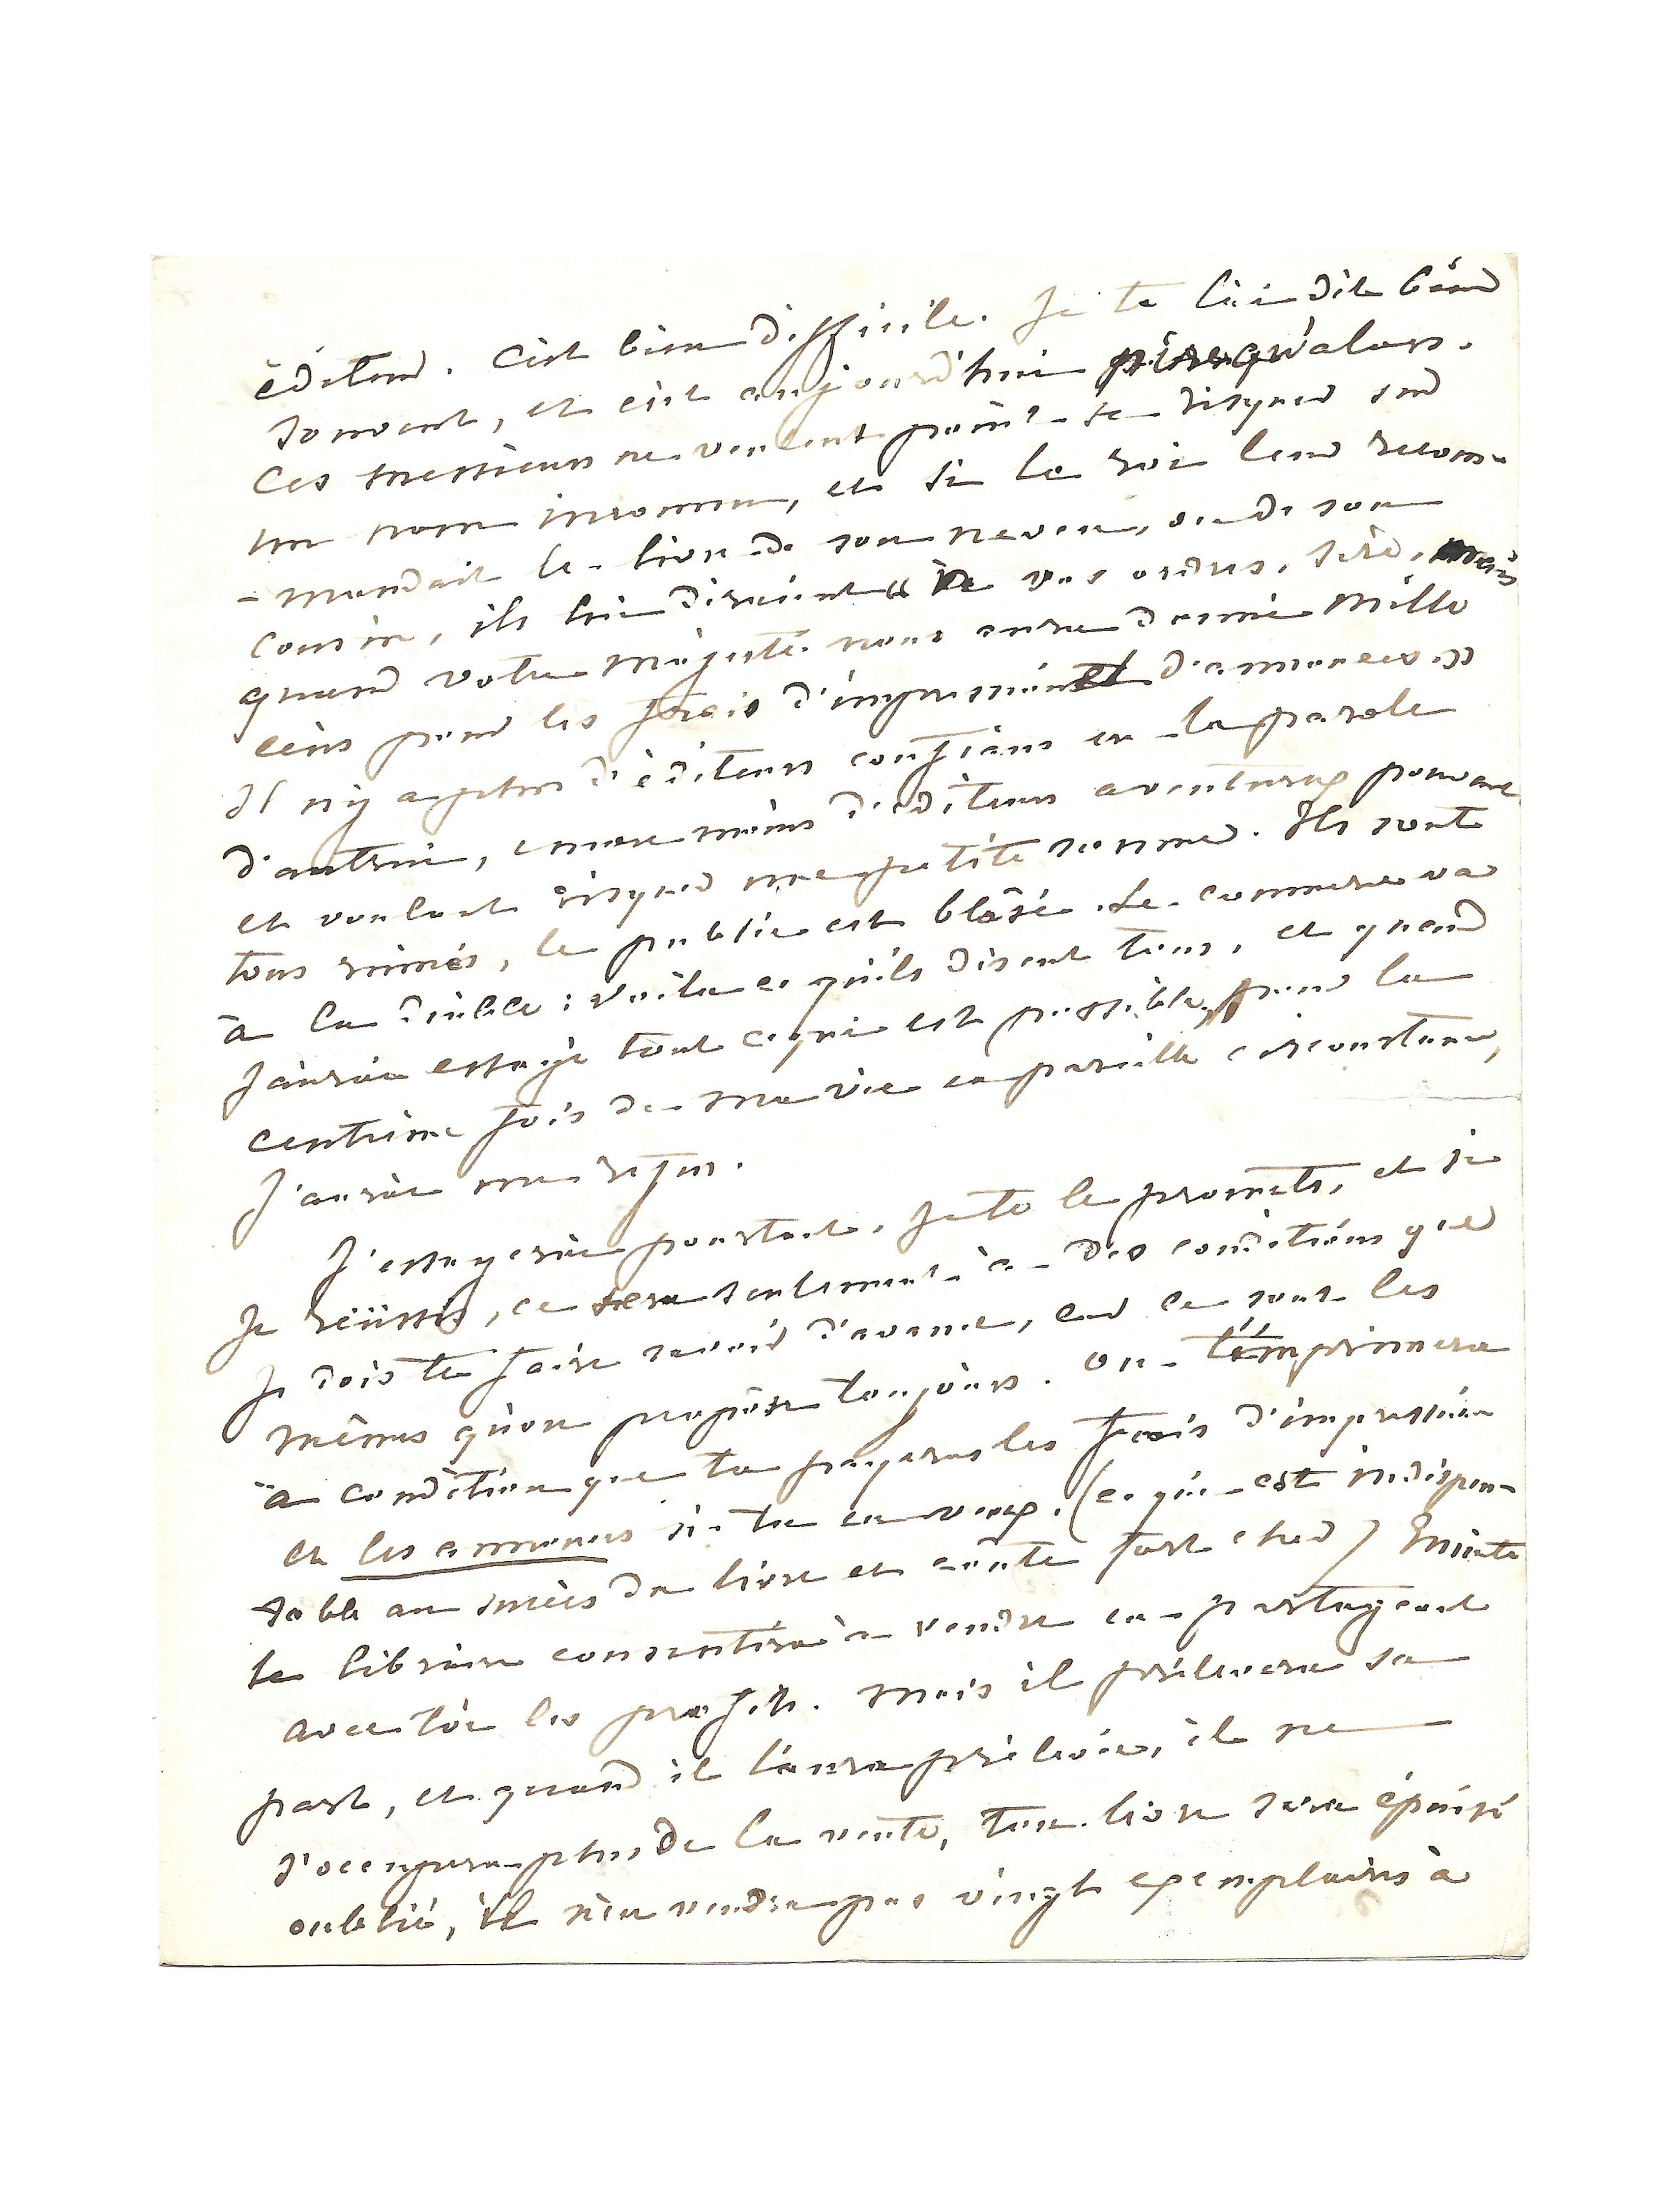 éditeur. C'est bien difficile. Je te l'ai dit bien
souvent, et c'est aujourd'hui pire qu'alors.
Ces messieurs ne veulent point se risquer sur
un nom inconnu, et si le roi leur recom-
-mandait le livre de son neveu, ou de son
cousin, ils lui diraient « à vos ordres, sire, mais
quand votre majesté nous aura donné mille
écus pour les frais d'impression et d'annonces. »
Il n'y a plus d'éditeurs confians en la parole
d'autrui, encore moins d'éditeurs aventureux pouvant
et voulant risquer une petite somme. Ils sont
tous ruinés, le public est blâsé. Le commerce va
à la diable : voilà ce qu'ils disent tous, et quand
j'aurai essayé tout ce qui est possible, pour la
centième fois de ma vie en pareille circonstance,
j'aurai un refus.
J'essayerai pourtant. Je te le promets, et si
je réussis, ce sera seulement à des conditions que
je dois te faire savoir d'avance, car ce sont les
mêmes qu'on propose toujours. On t'imprimera
à condition que tu payeras les frais d'impression
et les annonces si tu en veux. (ce qui est indispen-
sable au succès du livre et coûte fort cher) Ensuite
le libraire consentira à vendre en partageant
avec toi les profits. Mais il prélevera sa
part, et quand il l'aura prélevée, il ne
s'occupera plus de la vente, ton livre sera épuisé
oublié, il n'en vendra pas vingt exemplaires à